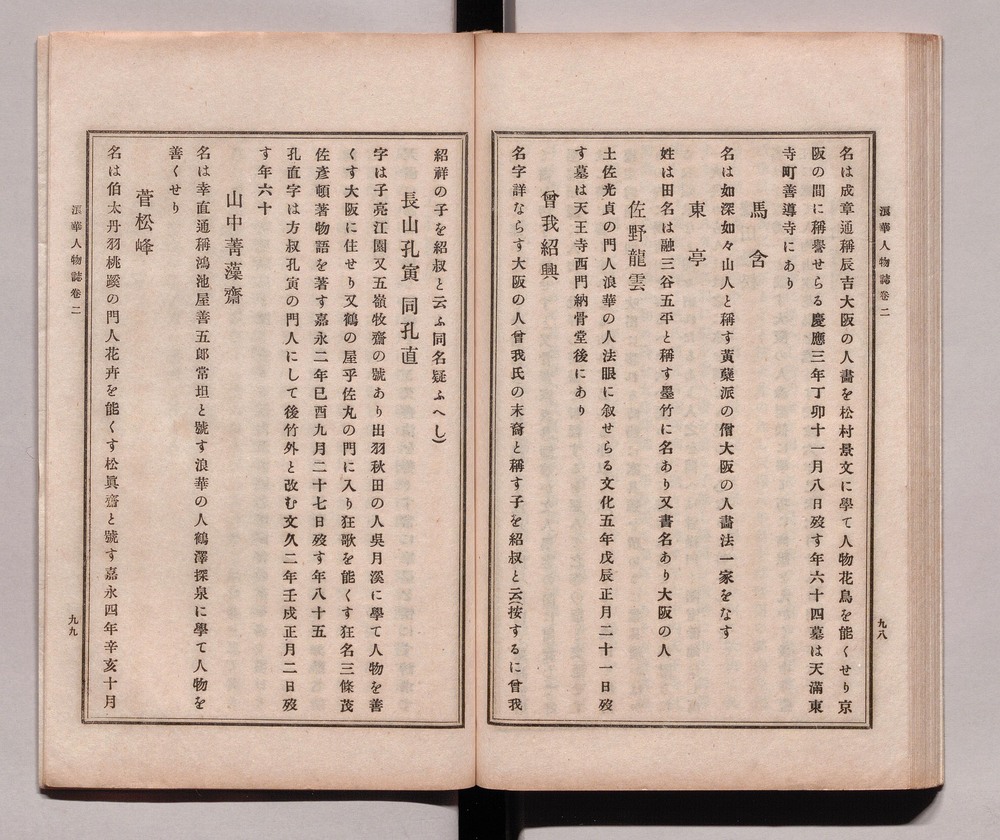 浪華人物誌卷二
九八
名は成章通稱辰吉大阪の人畵を松村景文に學て人物花鳥を能くせり京
阪の間に稱譽せらる慶應三年丁卯十一月八日歿す年六十四墓は天滿東
寺町善導寺にあり
馬含
名は如深如々山人と稱す黃蘗派の僧大阪の人畵法一家をなす
東亭
姓は田名は融三谷五平と稱す墨竹に名あり又書名あり大阪の人
佐野龍雲
土佐光貞の門人浪華の人法眼に叙せらる文化五年戊辰正月二十一日歿
す墓は天王寺西門納骨堂後にあり
曾我紹興
名字詳ならす大阪の人曾我氏の末裔と稱す子を紹叔と云(按するに曾我
紹祥の子を紹叔と云ふ同名疑ふへし)
長山孔寅 同孔直
字は子亮江園又五嶺牧齋の號あり出羽秋田の人吳月溪に學て人物を善
くす大阪に住せり又鶴の屋乎佐丸の門に入り狂歌を能くす狂名三條茂
佐彥頓著物語を著す嘉永二年巳酉九月二十七日歿す年八十五
孔直字は方叔孔寅の門人にして後竹外と改む文久二年壬戌正月二日歿
す年六十
山中菁藻齋
名は幸直通稱鴻池屋善五郎常坦と號す浪華の人鶴澤探泉に學て人物を
善くせり
菅松峰
名は伯太丹羽桃蹊の門人花卉を能くす松眞齋と號す嘉永四年辛亥十月
浪華人物誌卷二
九九